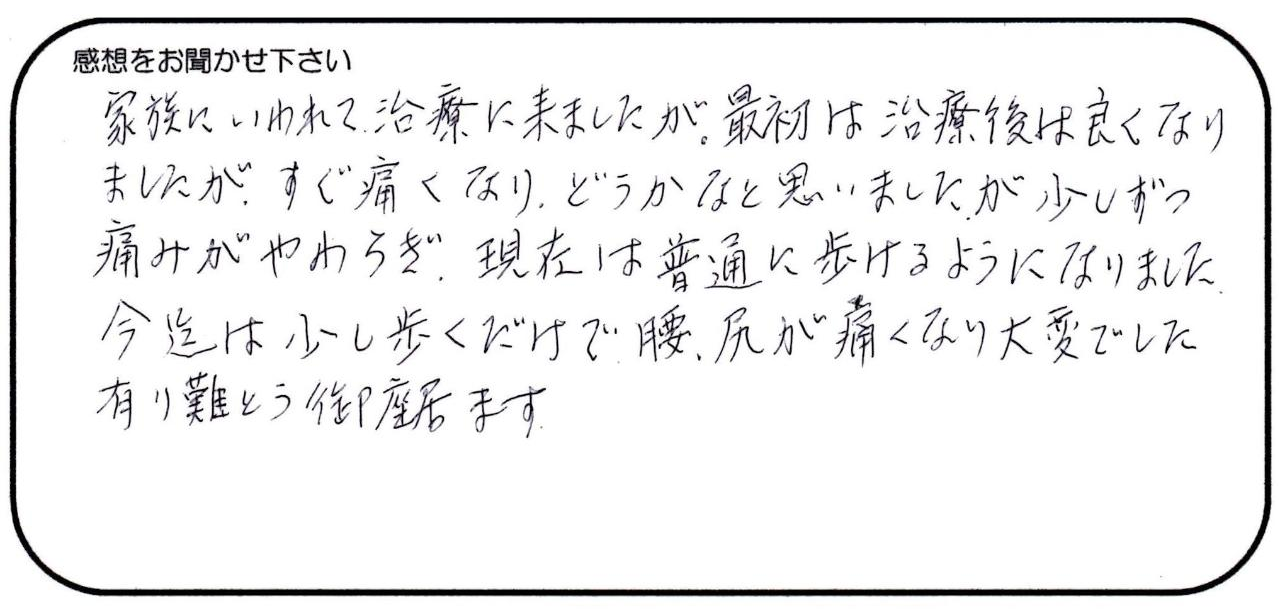 感想をお聞かせ下さい
家族にいわれて、治療に来ましたが。最初は治療後は良くなり
ましたが、すぐ痛くなり、どうかなと思いましたが少しずつ
痛みがやわらぎ、現在は普通に歩けるようになりました、
今迄は少し歩くだけで、腰、尻が痛くなり大変でした
有り難とう御座居ます、